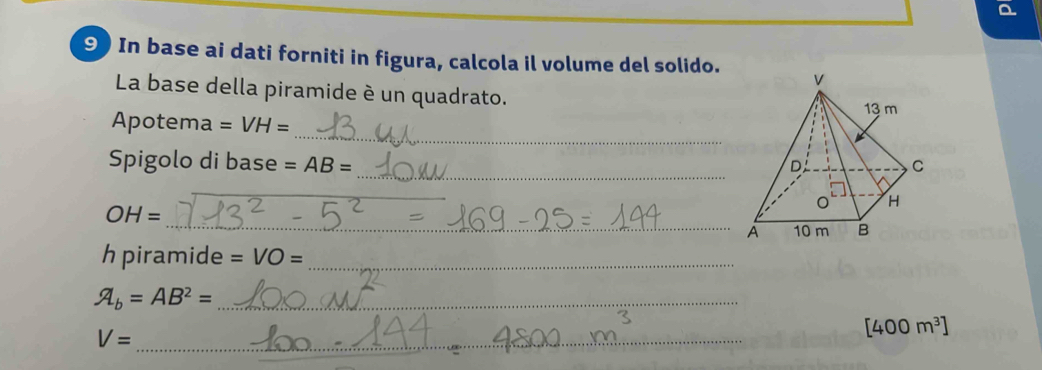 9 In base ai dati forniti in figura, calcola il volume del solido.
La base della piramide è un quadrato.
Apotema = VH = 13 m
Spigolo di base = AB = 10 m
OH = √13² - 5² = 169 - 25 = 144
h piramide = VO =
𝒜b = AB² = 100 m²
V = 100 · 144 = 4800 m³
[400 m³]
V
13 m
D
C
O
H
A
10 m
B